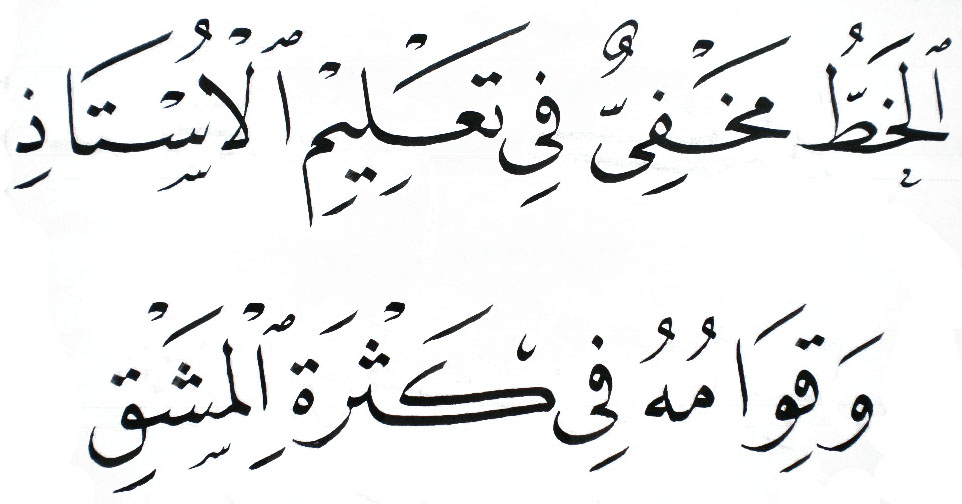 ٱلْخَطُّ مَخْفِىٌّ فِى تَعْلِيْمِ ٱلْاُسْتَاذِ
وَقِوَامُهُ فِى كَثْرَةِ ٱلْمَشْقِ